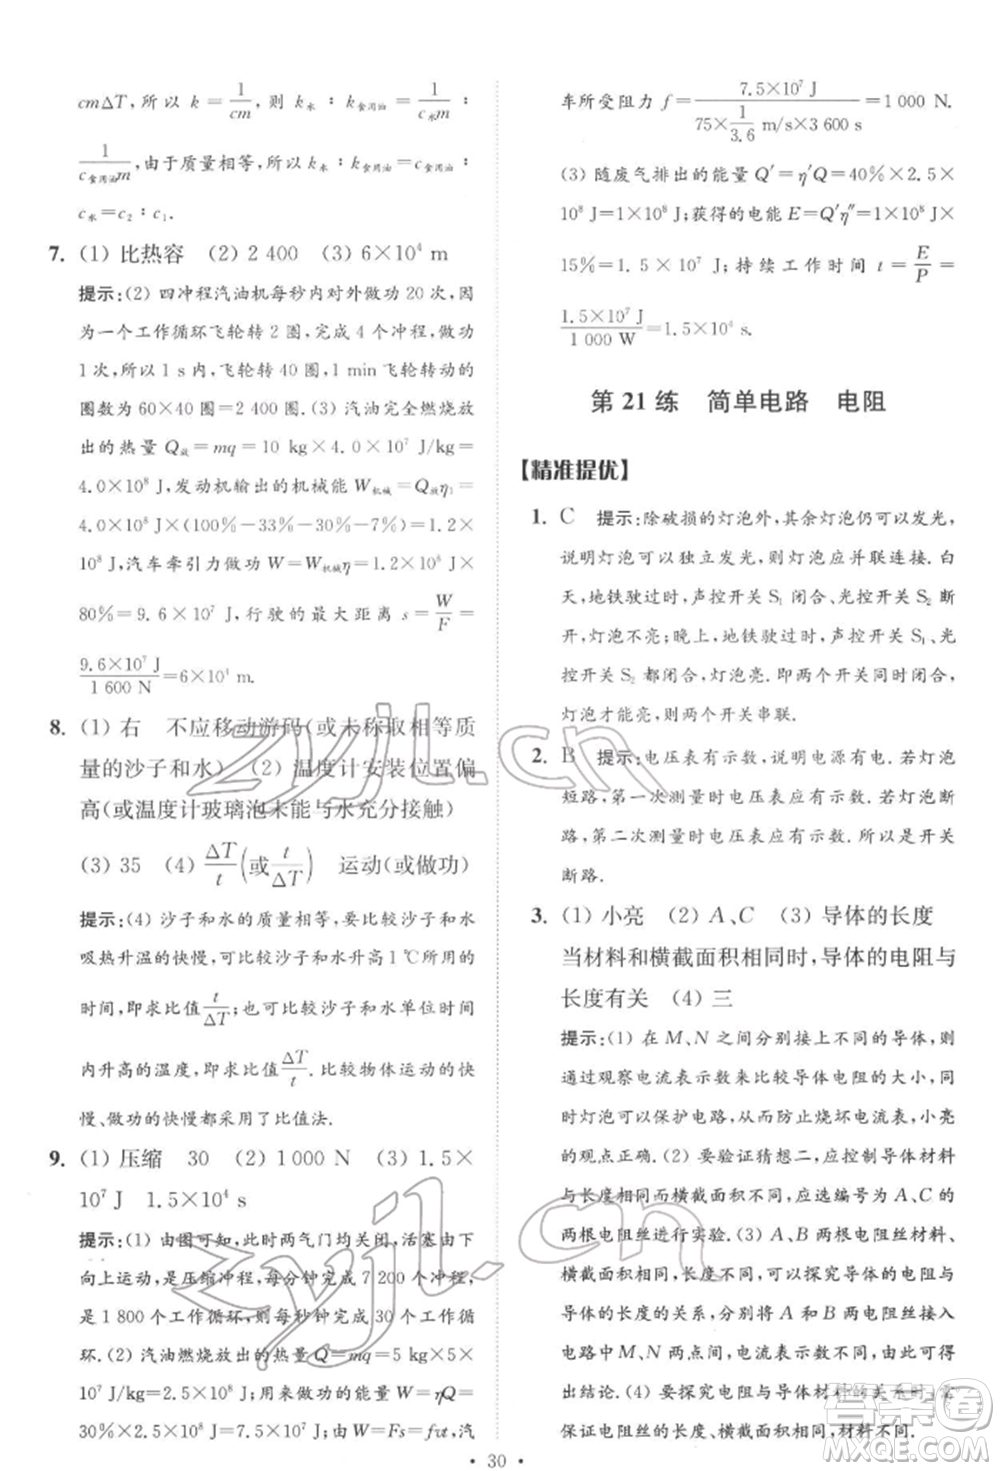 cmΔT，所以 k＝1/cm，则 k水∶k食用油＝1/c水m∶
1/c食用油m，由于质量相等，所以 k水∶k食用油＝c食用油∶
c水＝c₂∶c₁．
7. (1) 比热容　(2) 2 400　(3) 6×10⁴ m
提示：(2) 四冲程汽油机每秒内对外做功 20 次，因
为一个工作循环飞轮转 2 圈，完成 4 个冲程，做功
1 次，所以 1 s 内，飞轮转 40 圈，1 min 飞轮转动的
圈数为 60×40 圈＝2 400 圈．(3) 汽油完全燃烧放
出的热量 Q放＝mq＝10 kg×4.0×10⁷ J/kg＝
4.0×10⁸ J，发动机输出的机械能 W机械＝Q放η₁＝
4.0×10⁸ J×(100%－33%－30%－7%)＝1.2×
10⁸ J，汽车牵引力做功 W＝W机械η＝1.2×10⁸ J×
80%＝9.6×10⁷ J，行驶的最大距离 s＝W/F＝
9.6×10⁷ J/1 600 N＝6×10⁴ m．
8. (1) 右　不应移动游码(或未称取相等质
量的沙子和水)　(2) 温度计安装位置偏
高(或温度计玻璃泡未能与水充分接触)
(3) 35　(4) ΔT/t(或t/ΔT)　运动(或做功)
提示：(4) 沙子和水的质量相等，要比较沙子和水
吸热升温的快慢，可以比较沙子和水升高 1 ℃所用的
时间，即求比值t/ΔT；也可比较沙子和水单位时间
内升高的温度，即求比值ΔT/t．比较物体运动的快
慢、做功的快慢都采用了比值法．
9. (1) 压缩　30　(2) 1 000 N　(3) 1.5×
10⁷ J　1.5×10⁴ s
提示：(1) 由图可知，此时两气门均关闭，活塞由下
向上运动，是压缩冲程，每分钟完成 7 200 个冲程，
是 1 800 个工作循环，则每秒钟完成 30 个工作循
环．(2) 汽油燃烧放出的热量 Q＝mq＝5 kg×5×
10⁷ J/kg＝2.5×10⁸ J；用来做功的能量 W＝ηQ＝
30%×2.5×10⁸ J＝7.5×10⁷ J；由 W＝Fs＝fvt，汽
车所受阻力 f＝7.5×10⁷ J/(75×1/3.6 m/s×3 600 s)＝1 000 N．
(3) 随废气排出的能量 Q′＝η′Q＝40%×2.5×
10⁸ J＝1×10⁸ J；获得的电能 E＝Q′η″＝1×10⁸ J×
15%＝1.5×10⁷ J；持续工作时间 t＝E/P＝
1.5×10⁷ J/1 000 W＝1.5×10⁴ s．
第 21 练　简单电路　电阻
【精准提优】
1. C　提示：除破损的灯泡外，其余灯泡仍可以发光，
说明灯泡可以独立发光，则灯泡应并联连接．白
天，地铁驶过时，声控开关 S₁ 闭合、光控开关 S₂ 断
开，灯泡不亮；晚上，地铁驶过时，声控开关 S₁、光
控开关 S₂ 都闭合，灯泡亮．即两个开关都闭合时，
灯泡才能亮，则两个开关串联．
2. B　提示：电压表有示数，说明电源有电．若灯泡
短路，第一次测量时电压表应有示数．若灯泡断
路，第二次测量时电压表应有示数．所以是开关
断路．
3. (1) 小亮　(2) A、C　(3) 导体的长度
当材料和横截面积相同时，导体的电阻与
长度有关　(4) 三
提示：(1) 在 M、N 之间分别接上不同的导体，则
通过观察电流表示数来比较导体电阻的大小，同
时灯泡可以保护电路，从而防止烧坏电流表，小亮
的方法更合理．(2) 要验证猜想二，应控制导体材料
与长度相同而横截面积不同，应选编号为 A、C 的
两根电阻丝进行实验．(3) 两根电阻丝材料、
横截面积相同，长度不同，可以探究导体的电阻与导体
的长度的关系，分别将 A 和 B 两电阻丝接入
电路图中 M、N 两点间，电流表示数不同，可以得
出结论．(4) 要探究电阻与导体材料的关系时，要
保证导体的长度、横截面积相同，材料不同．
• 30 •
zyjl.cn
zyjl.cn
答案圈
MXQE.COM